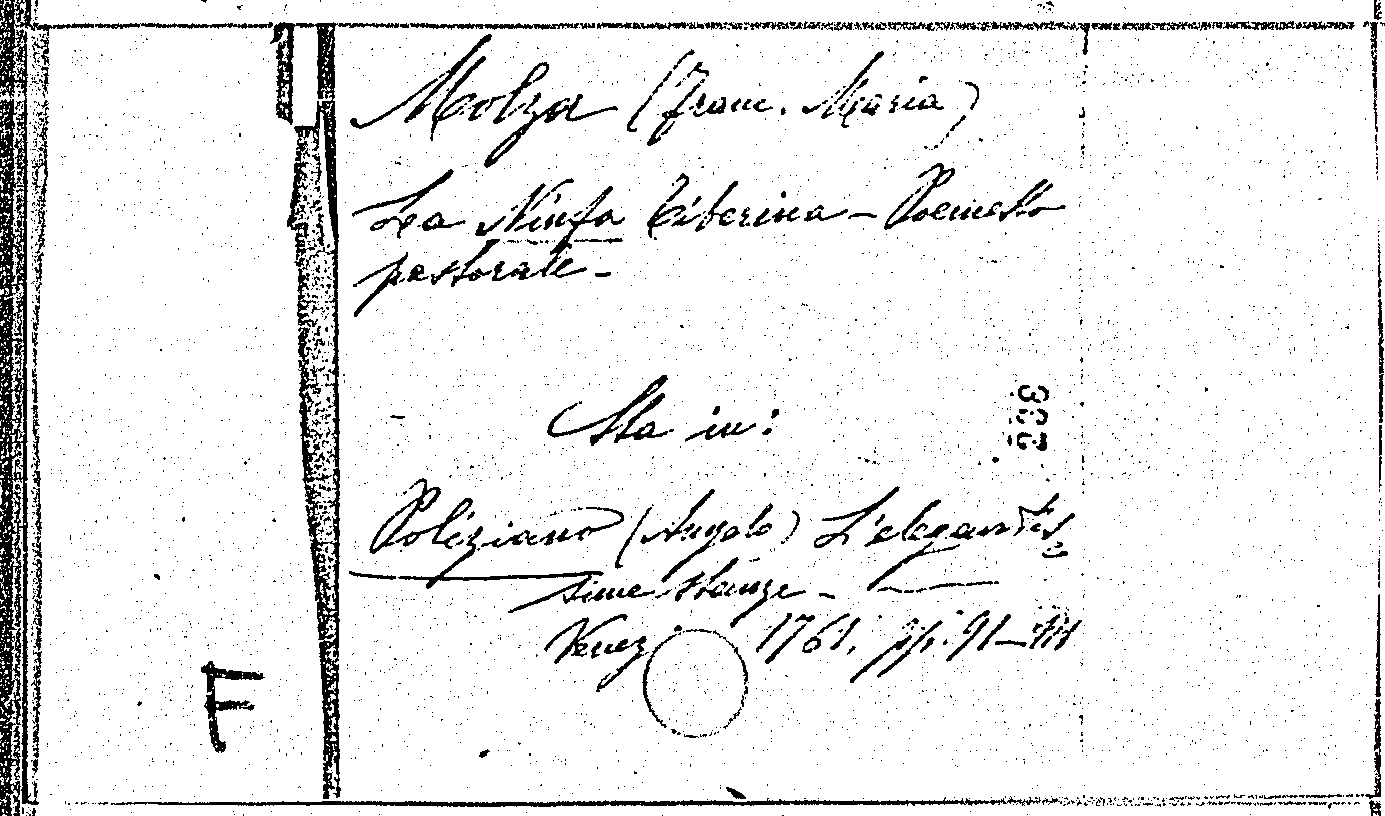 Molza (Franc. Maria)
La Ninfa Tiberina - Poemetto
pastorale -
Sta in:
Poliziano (Angelo) L'elegantis
sime stanze -
Venez. 1761. pp. 91-
F